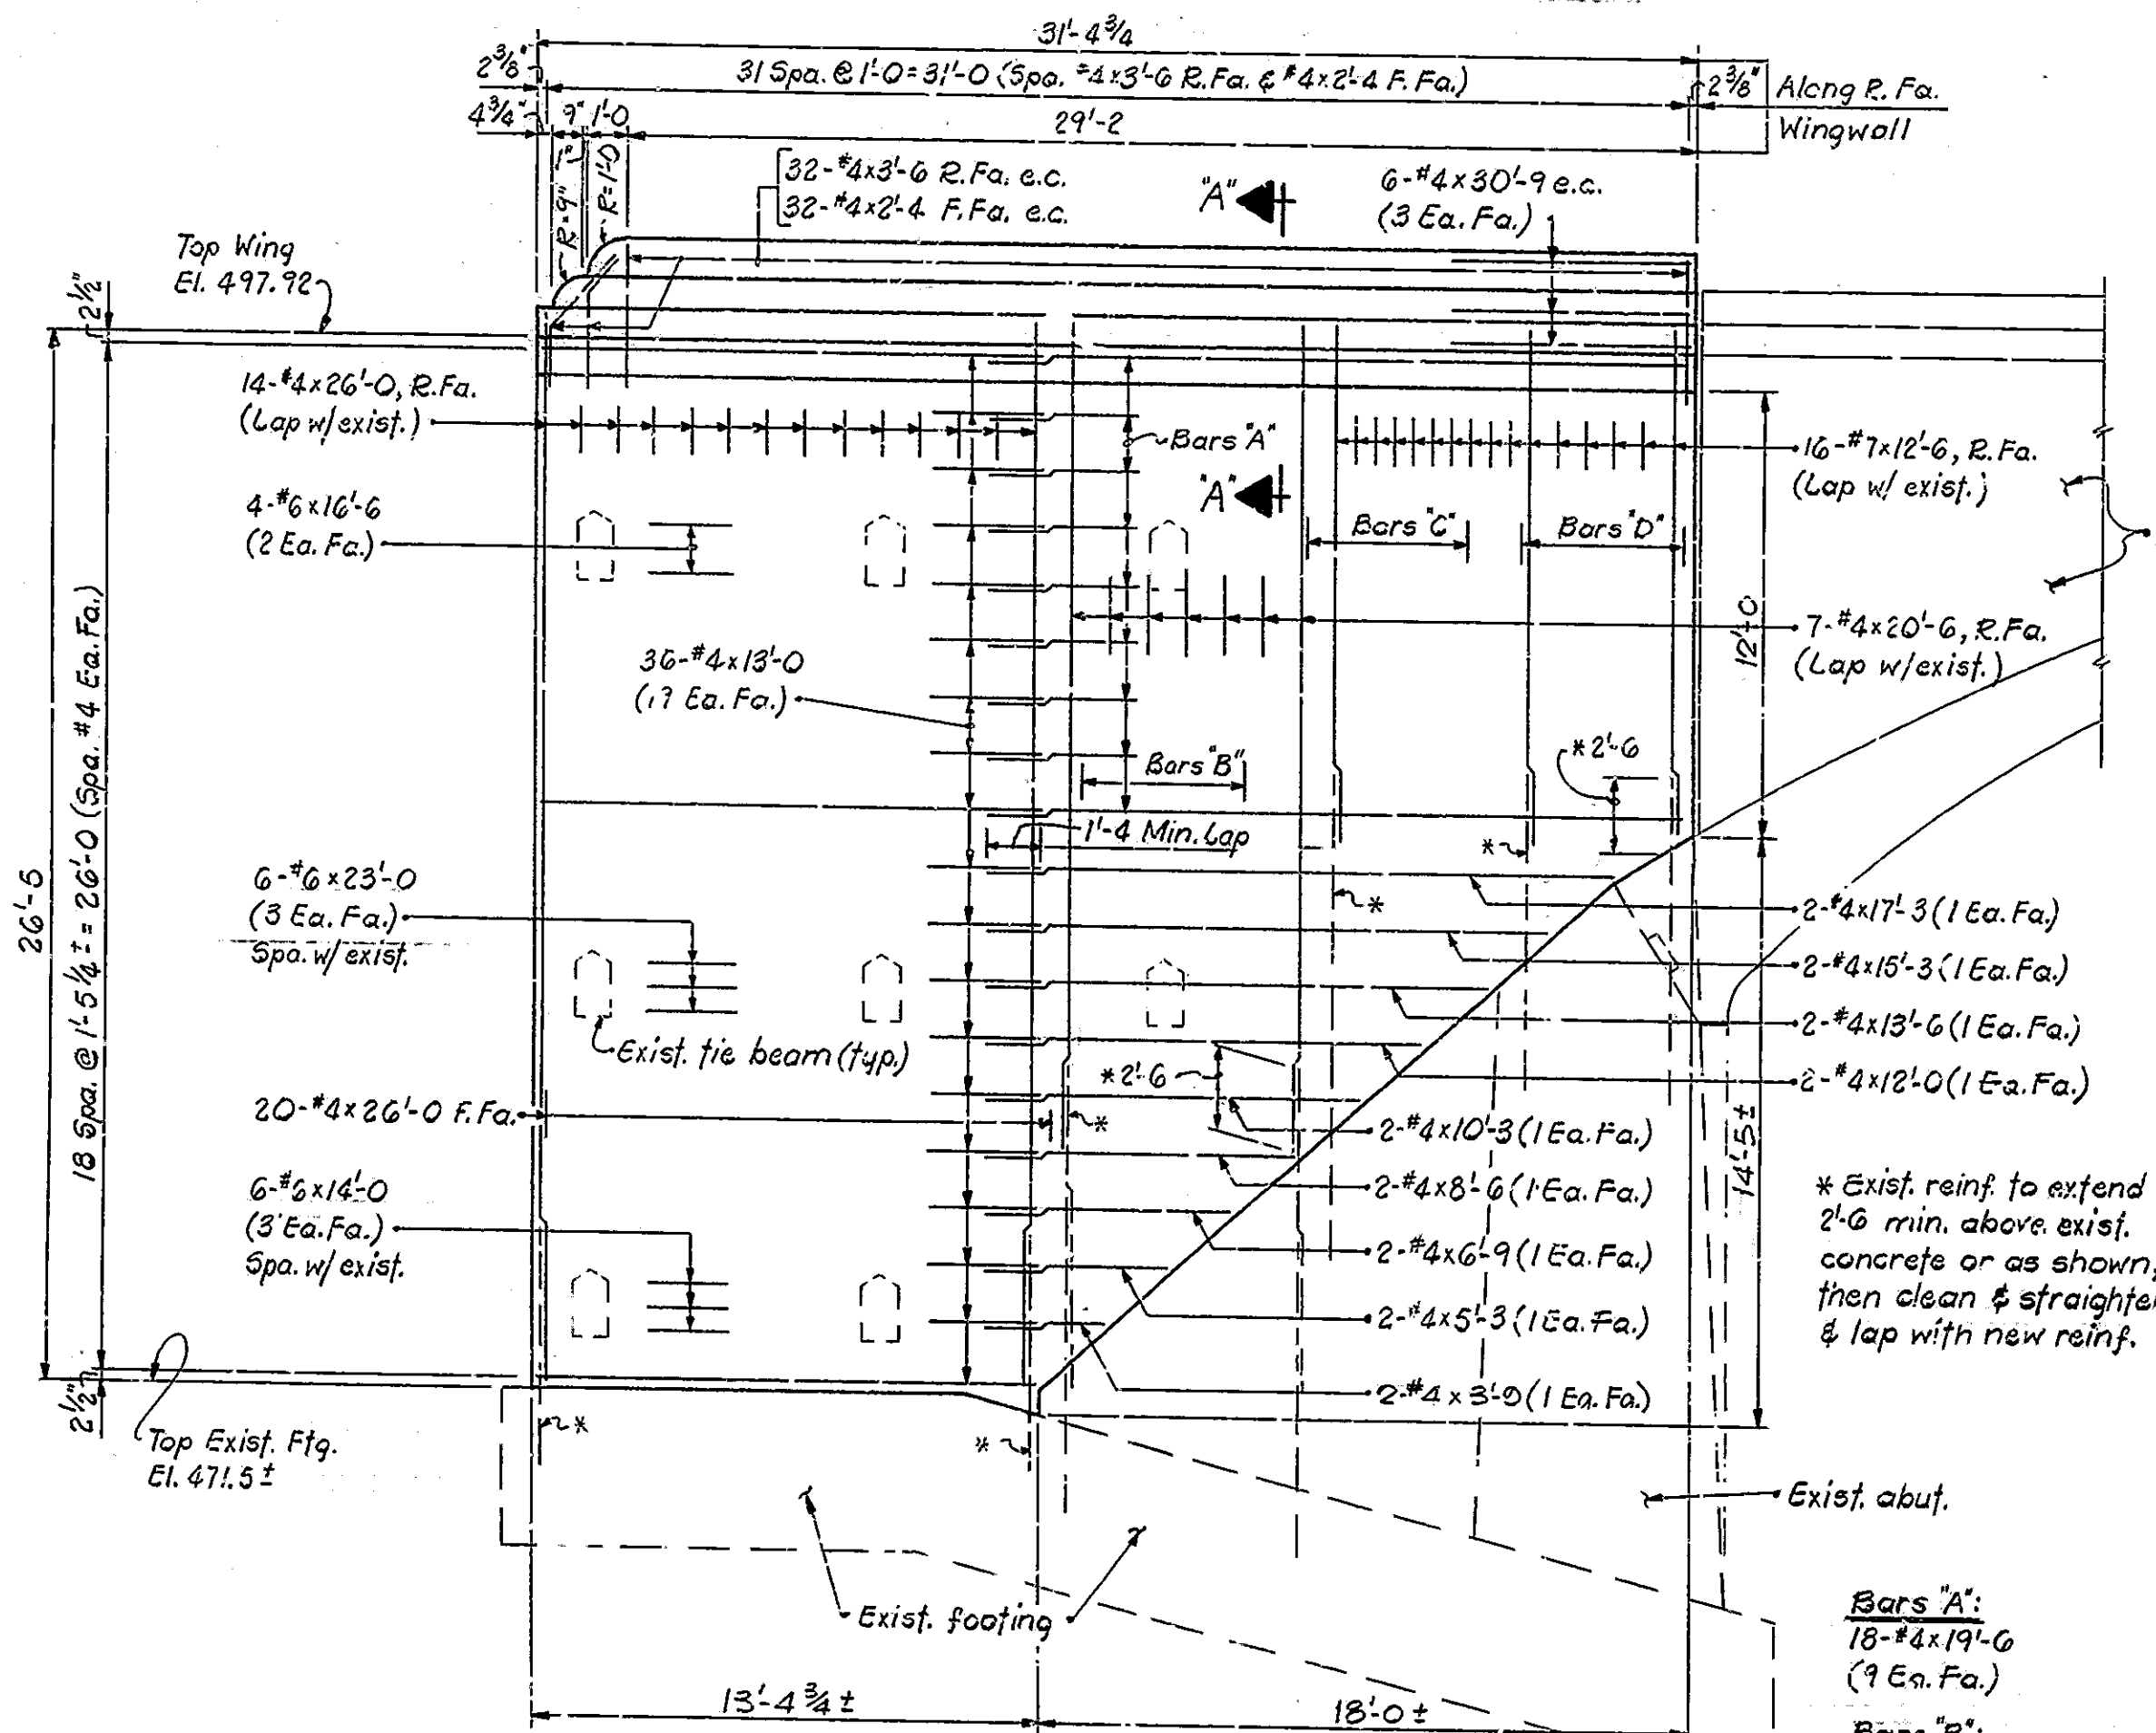 31'-4 3/4
2 3/8"
31 Spa. @ 1'-0 = 31'-0 (Spa. #4x3'-6 R.Fa. & #4x2'-4 F.Fa.)
2 3/8"
Along R. Fa.
Wingwall
4 3/4"
9"
1'-0
29'-2
1"
R=9"
R=1'-0
32-#4x3'-6 R.Fa. e.c.
32-#4x2'-4 F.Fa. e.c.
"A"
6-#4x30'-9 e.c.
(3 Ea. Fa.)
Top Wing
El. 497.92
2 1/2"
14-#4x26'-0, R.Fa.
(Lap w/exist.)
Bars "A"
16-#7x12'-6, R.Fa.
(Lap w/ exist.)
"A"
4-#6x16'-6
(2 Ea. Fa.)
Bars "C"
Bars "D"
7-#4x20'-6, R.Fa.
(Lap w/exist.)
12'-0
36-#4x13'-0
Ea. Fa.)
*2'-6
Bars "B"
1'-4 Min. Lap
*
*
26'-5
18 Spa. @ 1'-5 1/4 ± = 26'-0 (Spa. #4 Ea. Fa.)
6-#6x23'-0
(3 Ea. Fa.)
Spa. w/ exist.
2-#4x17'-3 (1 Ea. Fa.)
2-#4x15'-3 (1 Ea. Fa.)
2-#4x13'-6 (1 Ea. Fa.)
2-#4x12'-0 (1 Ea. Fa.)
Exist. tie beam (typ.)
*2'-6
*
20-#4x26'-0 F.Fa.
2-#4x10'-3 (1 Ea. Fa.)
2-#4x8'-6 (1 Ea. Fa.)
2-#4x6'-9 (1 Ea. Fa.)
2-#4x5'-3 (1 Ea. Fa.)
2-#4x3'-9 (1 Ea. Fa.)
14'-5±
6-#6x14'-0
(3 Ea. Fa.)
Spa. w/ exist.
* Exist. reinf. to extend
2'-6 min. above exist.
concrete or as shown,
then clean & straighten
& lap with new reinf.
2 1/2"
Top Exist. Ftg.
El. 471.5 ±
*
*
Exist. abut.
Exist. footing
Bars "A":
18-#4x19'-6
(9 Ea. Fa.)
13'-4 3/4 ±
18'-0 ±
Bars "B":